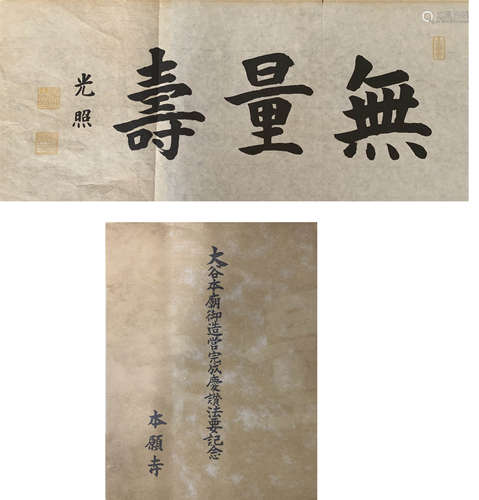 無量壽
光照
大谷本廟御造営完成慶讃法要記念
本願寺